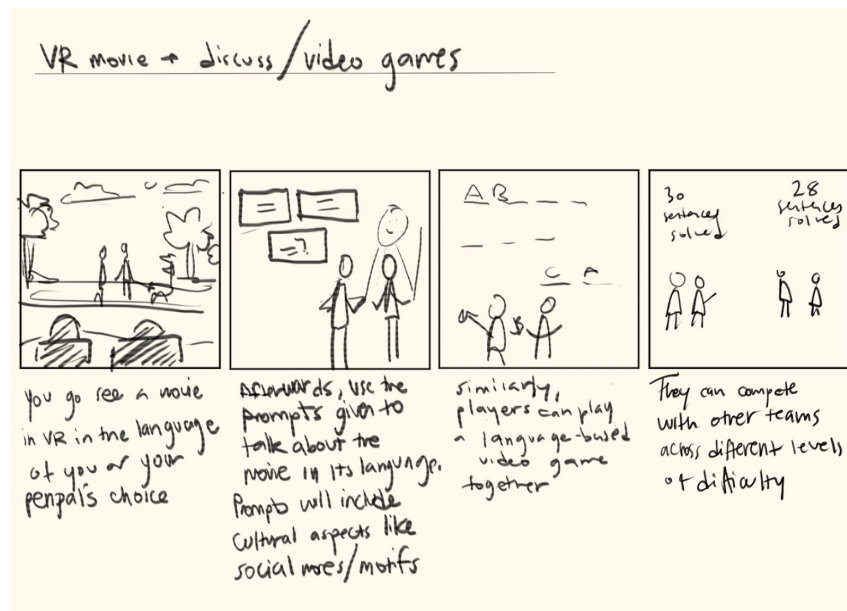 VR movie + discuss/video games
=?
A B _ _ _ _
_ _ _ _
C A
30
sentences
solved
28
sentences
solved
you go see a movie
in VR in the language
of you or your
penpal's choice
Afterwards, use the
prompts given to
talk about the
movie in its language.
Prompts will include
cultural aspects like
social mores/motifs
similarly,
players can play
a language-based
video game
together
They can compete
with other teams
across different levels
of difficulty